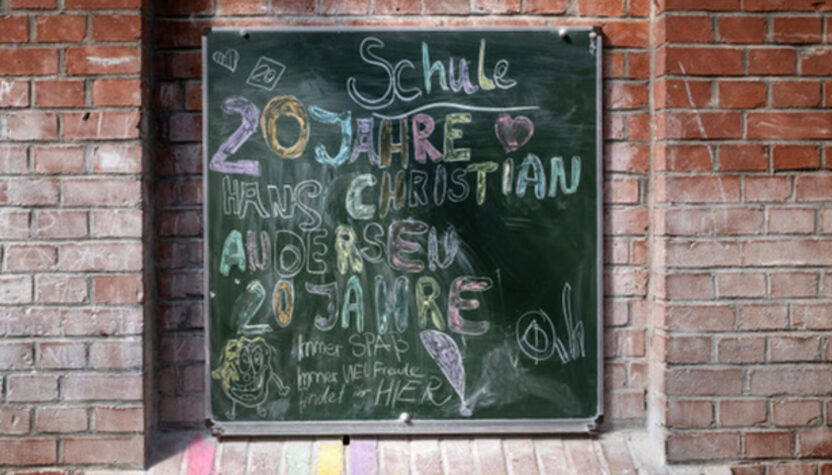 Schule
20
20 JAHRE
HANS CHRISTIAN
ANDERSEN
20 JAHRE
Immer SPAß
Immer VIEL Freude
findet ihr HIER